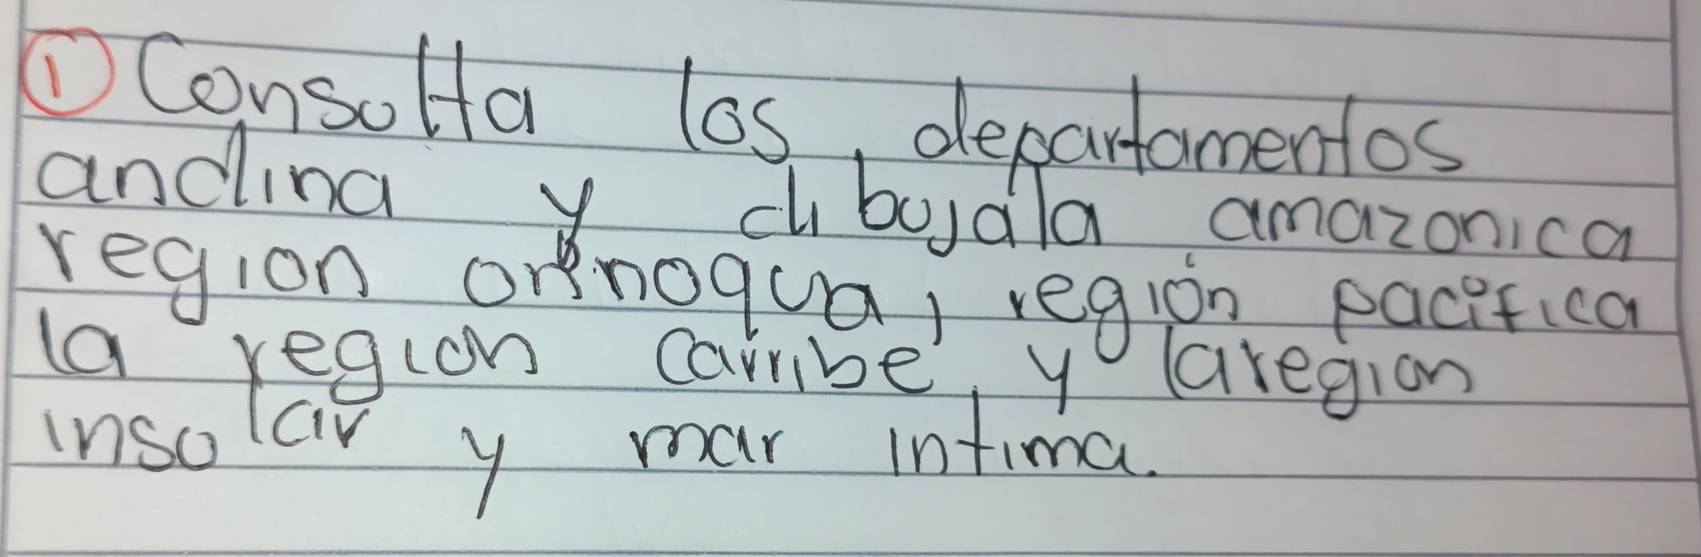 ① Consolta los departamentos
andina y dibujala amazonica
region orinoqua, región pacifica
la region Carribe y la region
insolar y mar intima.